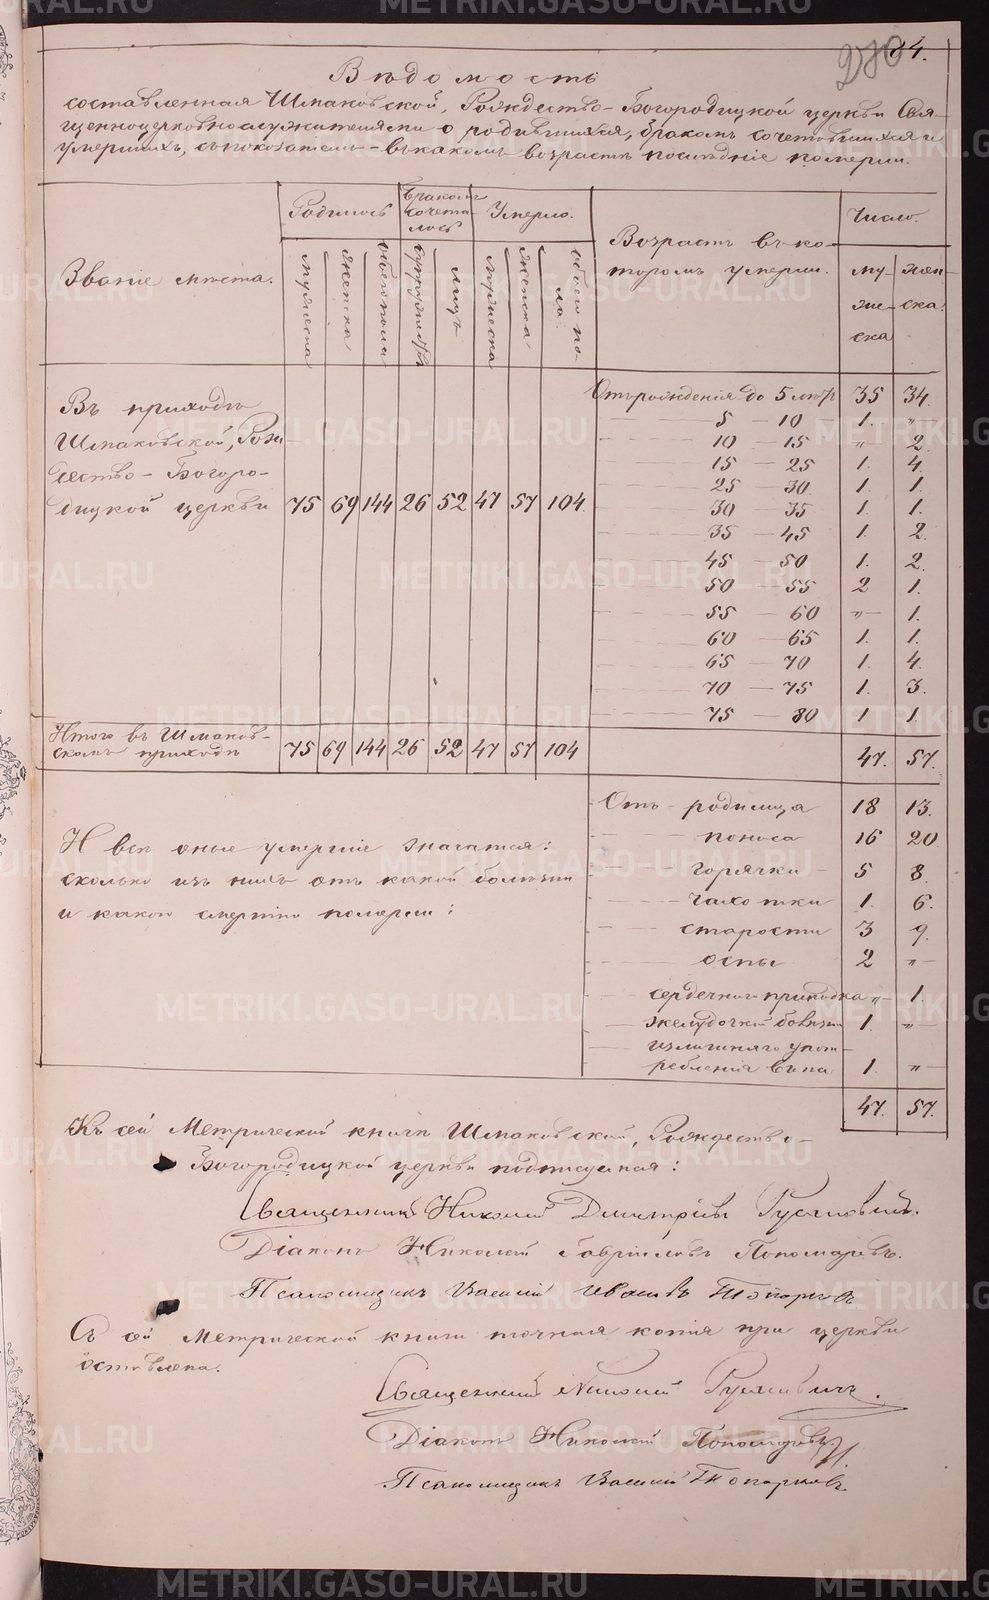 280 34.
Вѣдомость
составленная Шмаковской, Рождество-Богородицкой церкви Свя-
щенноцерковнослужителями о родившихся, бракомъ сочетавшихся и
умершихъ, съ показателемъ - въ какомъ возрастѣ послѣдніе померли.
Званіе мѣста.
Родилось
мужеска
женска
обоего пола
Бракомъ сочета-лось
супружествъ
лицъ
Умерло.
мужеска
женска
обоего по-ла.
Возрастъ въ ко-
торомъ умерли.
Число.
му-же-ска
жен-ска.
Въ приходѣ
Шмаковской, Рож-
дество-Богоро-
дицкой церкви 75 69 144 26 52 47 57 104
Отъ рожденія до 5 лѣтъ 35 34.
5 — 10 1. "
10 — 15 " 2.
15 — 25 1. 4.
25 30 1. 1.
30 — 35 1. 1.
35 — 45 1. 2.
45 50 1. 2.
50 — 55 2 1.
55 — 60 " 1.
60 — 65 1. 1.
65 — 70 1. 4.
70 — 75 1. 3.
75 — 80 1 1.
Итого въ Шмаков-
скомъ приходѣ 75 69 144 26 52 47 57 104 47. 57.
И всѣ оные умершіе значатся:
сколько изъ нихъ отъ какой болѣзни
и какою смертію померли:
Отъ - родимца 18 13.
поноса 16 20
горячки 5 8.
чахотки 1. 6.
старости 3 9.
оспы 2 "
сердечного припадка " 1.
желудочной болѣзни 1. "
излишняго упот-
ребленія вина 1. "
47. 57.
Къ сей Метрической книгѣ Шмаковской, Рождество-
Богородицкой церкви подписуемся:
Священникъ Николай Димитріевъ
Діаконъ Николай Гавріиловъ Пономаревъ.
Псаломщикъ Василій Ивановъ Топорковъ
Съ сей Метрической книги точная копія при церкви
оставлена.
Священникъ Николай
Діаконъ Николай Пономаревъ.
Псаломщикъ Василій Топорковъ.
METRIKI.GASO-URAL.RU